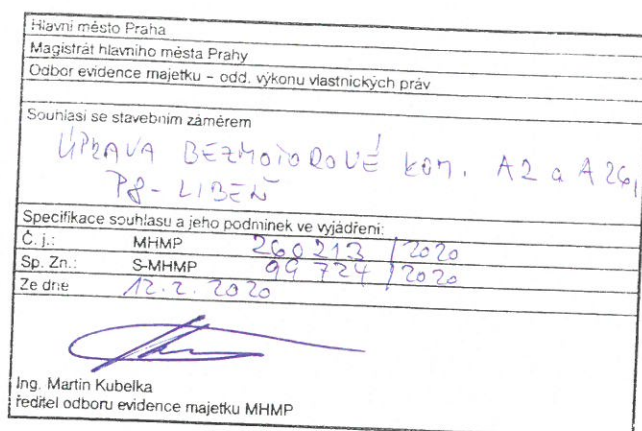 Hlavní město Praha
Magistrát hlavního města Prahy
Odbor evidence majetku – odd. výkonu vlastnických práv
Souhlasí se stavebním záměrem
ÚPRAVA BEZMOTOROVÉ KOM. A2 a A26,
P8 - LIBEŇ
Specifikace souhlasu a jeho podmínek ve vyjádření:
Č. j.: MHMP 260213 / 2020
Sp. Zn.: S-MHMP 99724 / 2020
Ze dne 12. 2. 2020
Ing. Martin Kubelka
ředitel odboru evidence majetku MHMP